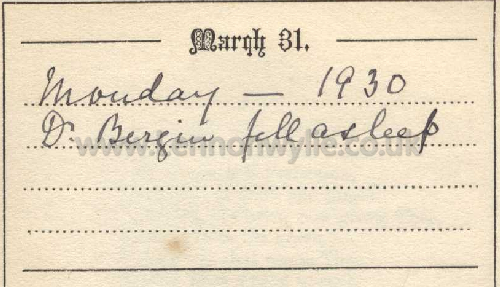 March 31.
Monday — 1930
Dr. Bergin fell asleep
www.pennonwyllie.co.uk